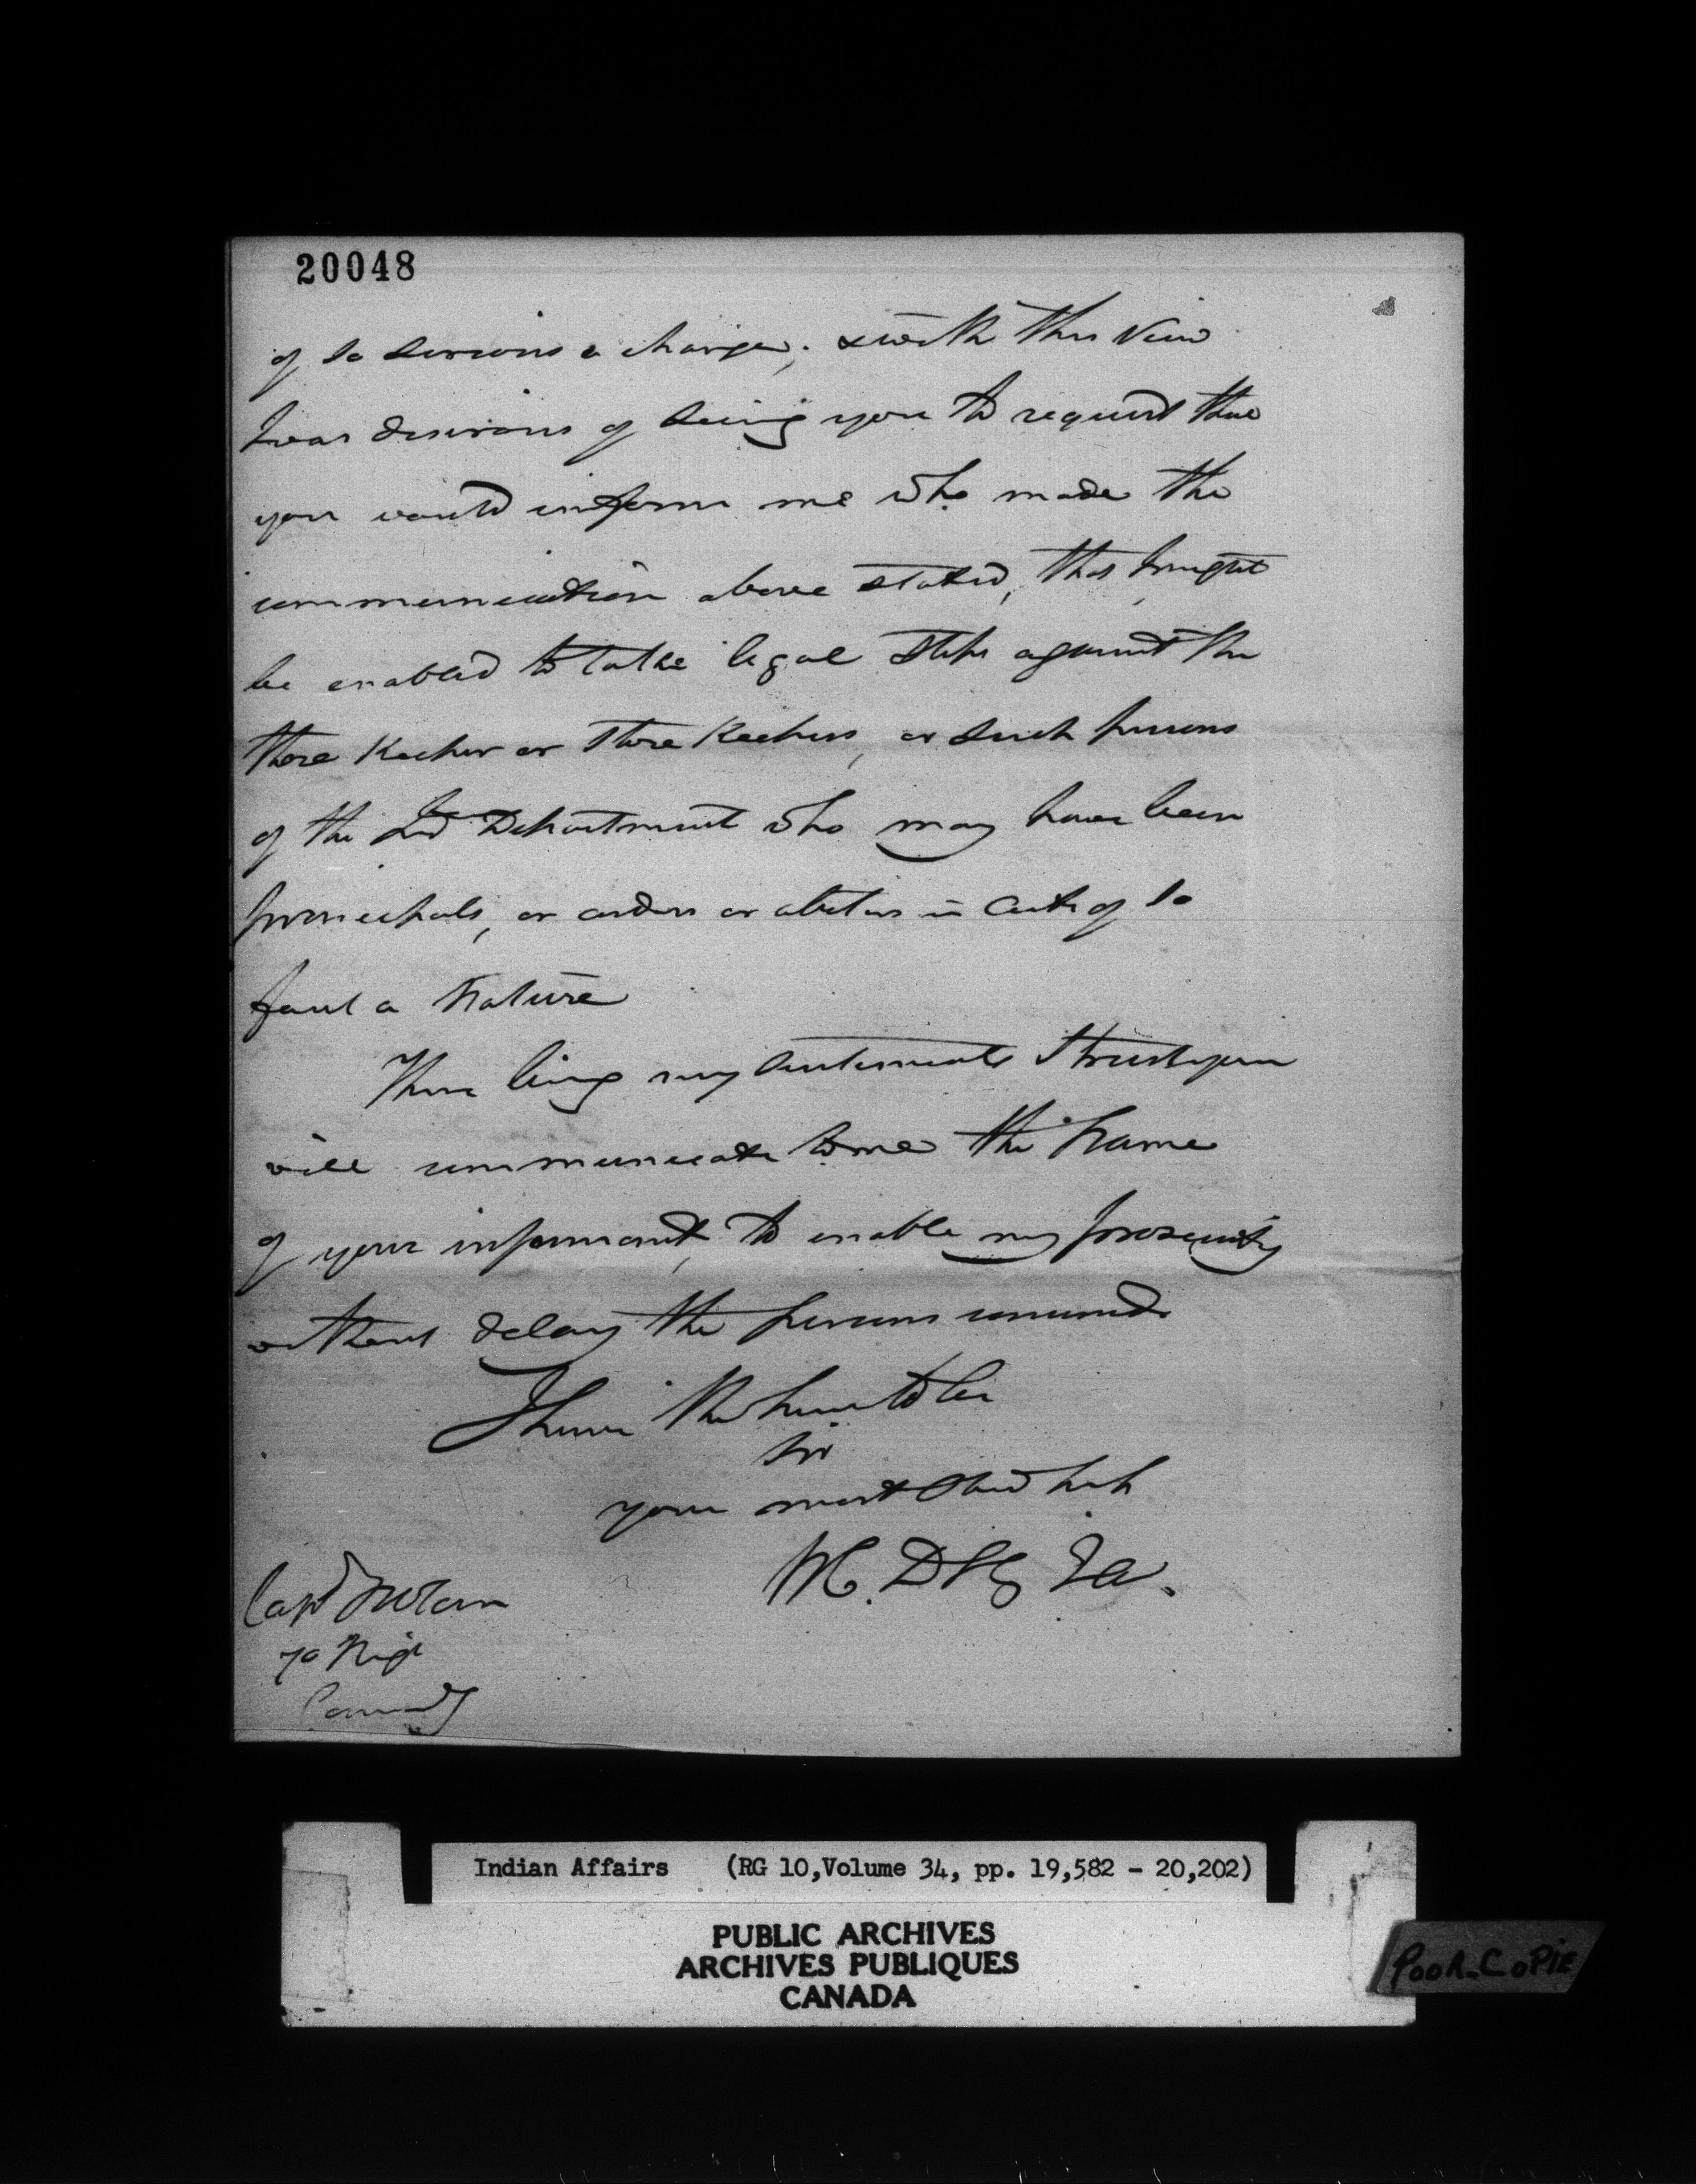 20048
of so serious a charge; & with this view
I was desirous of seeing you to request that
you would inform me who made the
communication above stated, that I might
be enabled to take legal steps against the
Store Keeper or Store Keepers, or such persons
of the Ind Department who may have been
principals, or aiders or abettors in acts of so
foul a nature
These being my sentiments I trust you
will communicate to me the name
of your informant, to enable my prosecuting
without delay the persons concerned
I have the honor to be
Sir
your most Obed
Capt
70 Regt
Indian Affairs (RG 10,Volume 34, pp. 19,582 - 20,202)
PUBLIC ARCHIVES
ARCHIVES PUBLIQUES
CANADA
POOR-COPIE